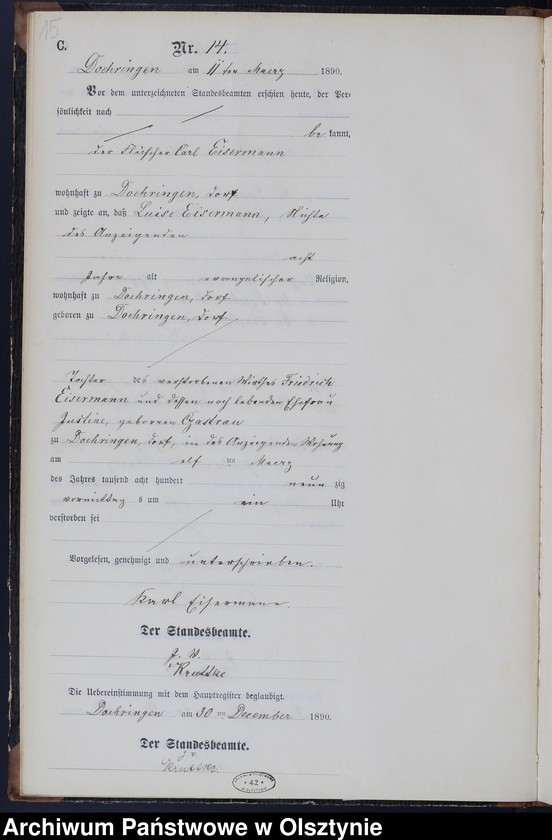 15
C. Nr. 14.
Doehringen am 11ten Maerz 1890.
Vor dem unterzeichneten Standesbeamten erschien heute, der Per-
sönlichkeit nach
be kannt,
der Fleischer Carl Eisermann
wohnhaft zu Doehringen, Dorf
und zeigte an, daß Luise Eisermann, Nichte
des Anzeigenden
acht
Jahre alt evangelischer Religion,
wohnhaft zu Doehringen, Dorf
geboren zu Doehringen, Dorf
Tochter des verstorbenen Wirthes Friedrich
Eisermann und dessen noch lebenden Ehefrau
Justine, geborenen
zu Doehringen, Dorf, in des Anzeigenden Wohnung
am elf ten Maerz
des Jahres tausend acht hundert neun zig
vormittag s um ein Uhr
verstorben sei
Vorgelesen, genehmigt und unterschrieben.
Karl Eisermann.
Der Standesbeamte.
J. V.
Kruttke
Die Uebereinstimmung mit dem Hauptregister beglaubigt.
Doehringen am 30 ten December 1890.
Der Standesbeamte.
J. V.
Kruttke.
42
Archiwum Państwowe w Olsztynie